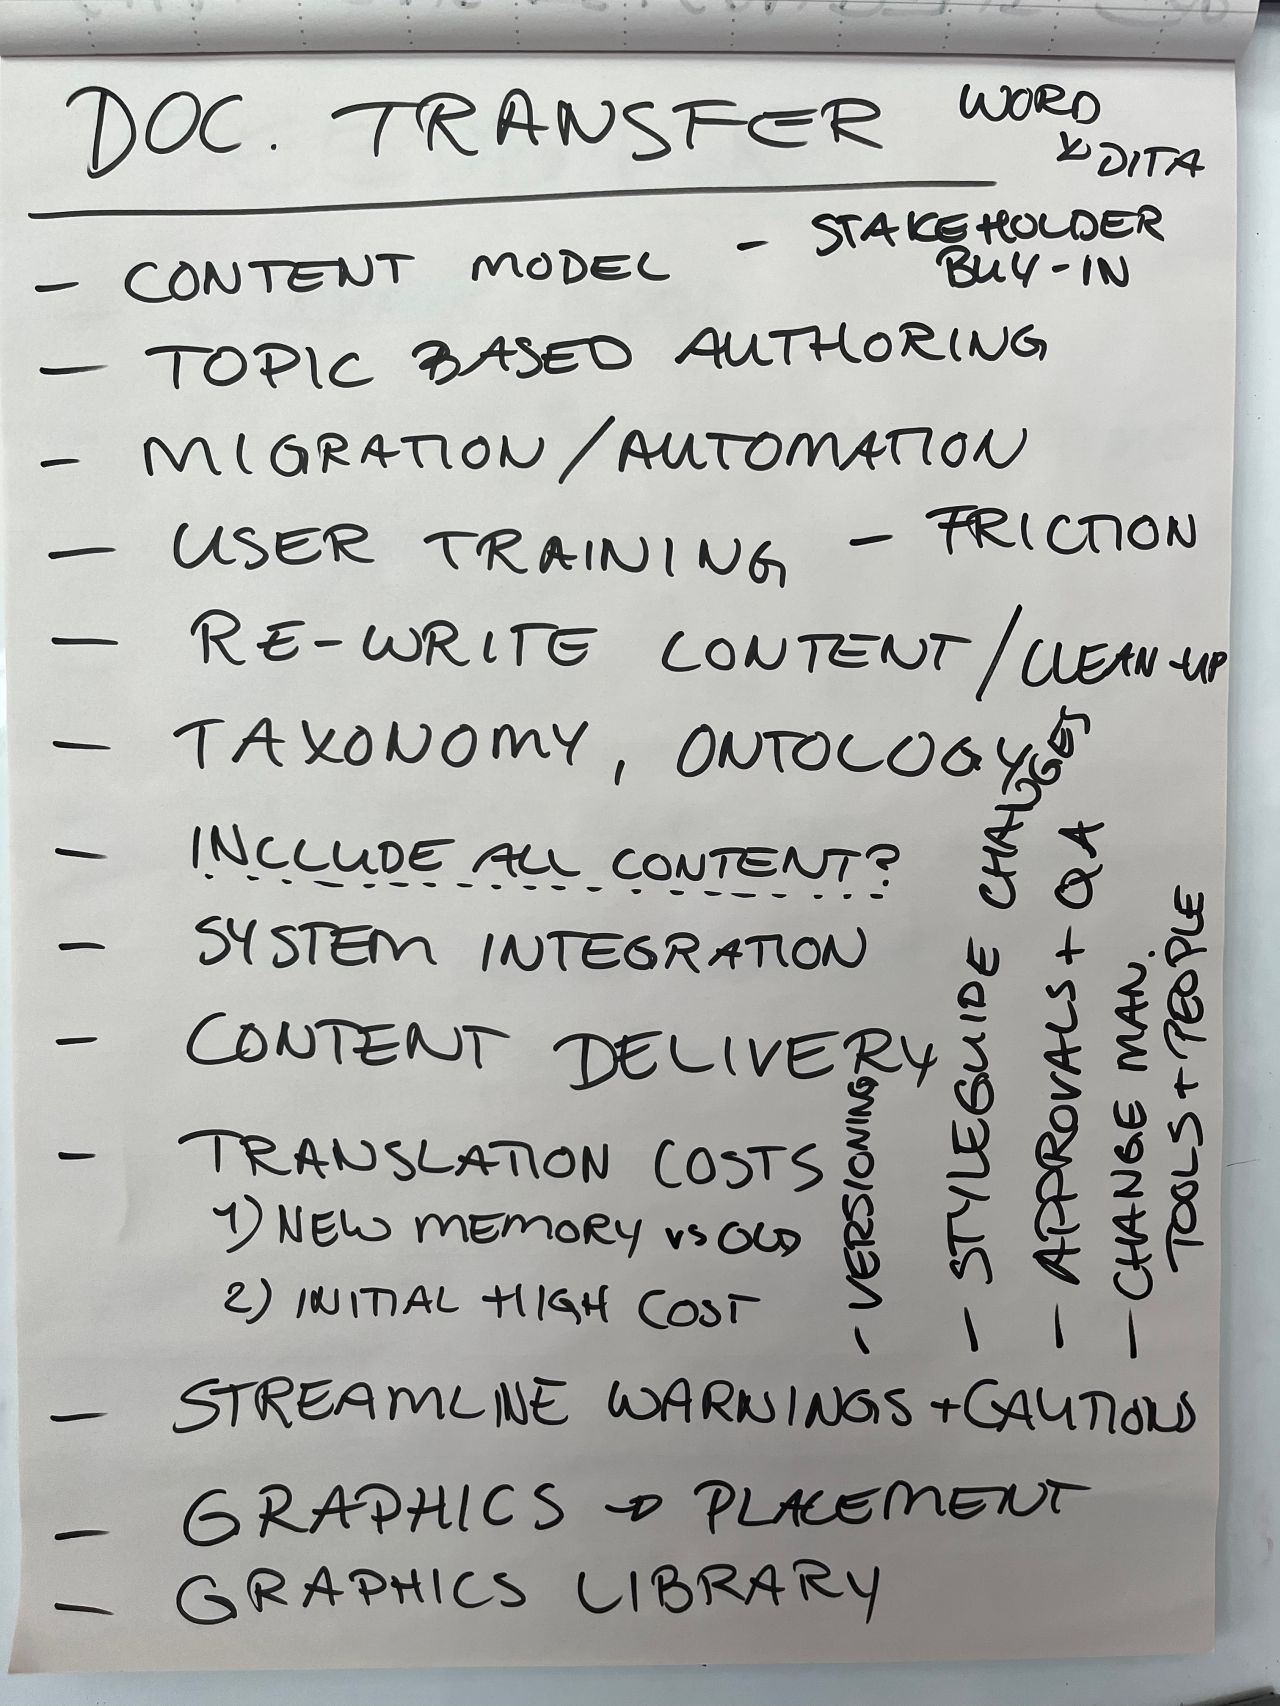 DOC. TRANSFER
WORD
DITA
- CONTENT MODEL
- STAKEHOLDER
BUY-IN
- TOPIC BASED AUTHORING
- MIGRATION/AUTOMATION
- USER TRAINING - FRICTION
- RE-WRITE CONTENT/CLEAN-UP
- TAXONOMY, ONTOLOGY
- INCLUDE ALL CONTENT?
- SYSTEM INTEGRATION
- CONTENT DELIVERY
- TRANSLATION COSTS
1) NEW MEMORY vs OLD
2) INITIAL HIGH COST
- STREAMLINE WARNINGS + CAUTIONS
- GRAPHICS → PLACEMENT
- GRAPHICS LIBRARY
- VERSIONING
- STYLEGUIDE CHANGES
- APPROVALS + QA
- CHANGE MAN.
TOOLS + PEOPLE